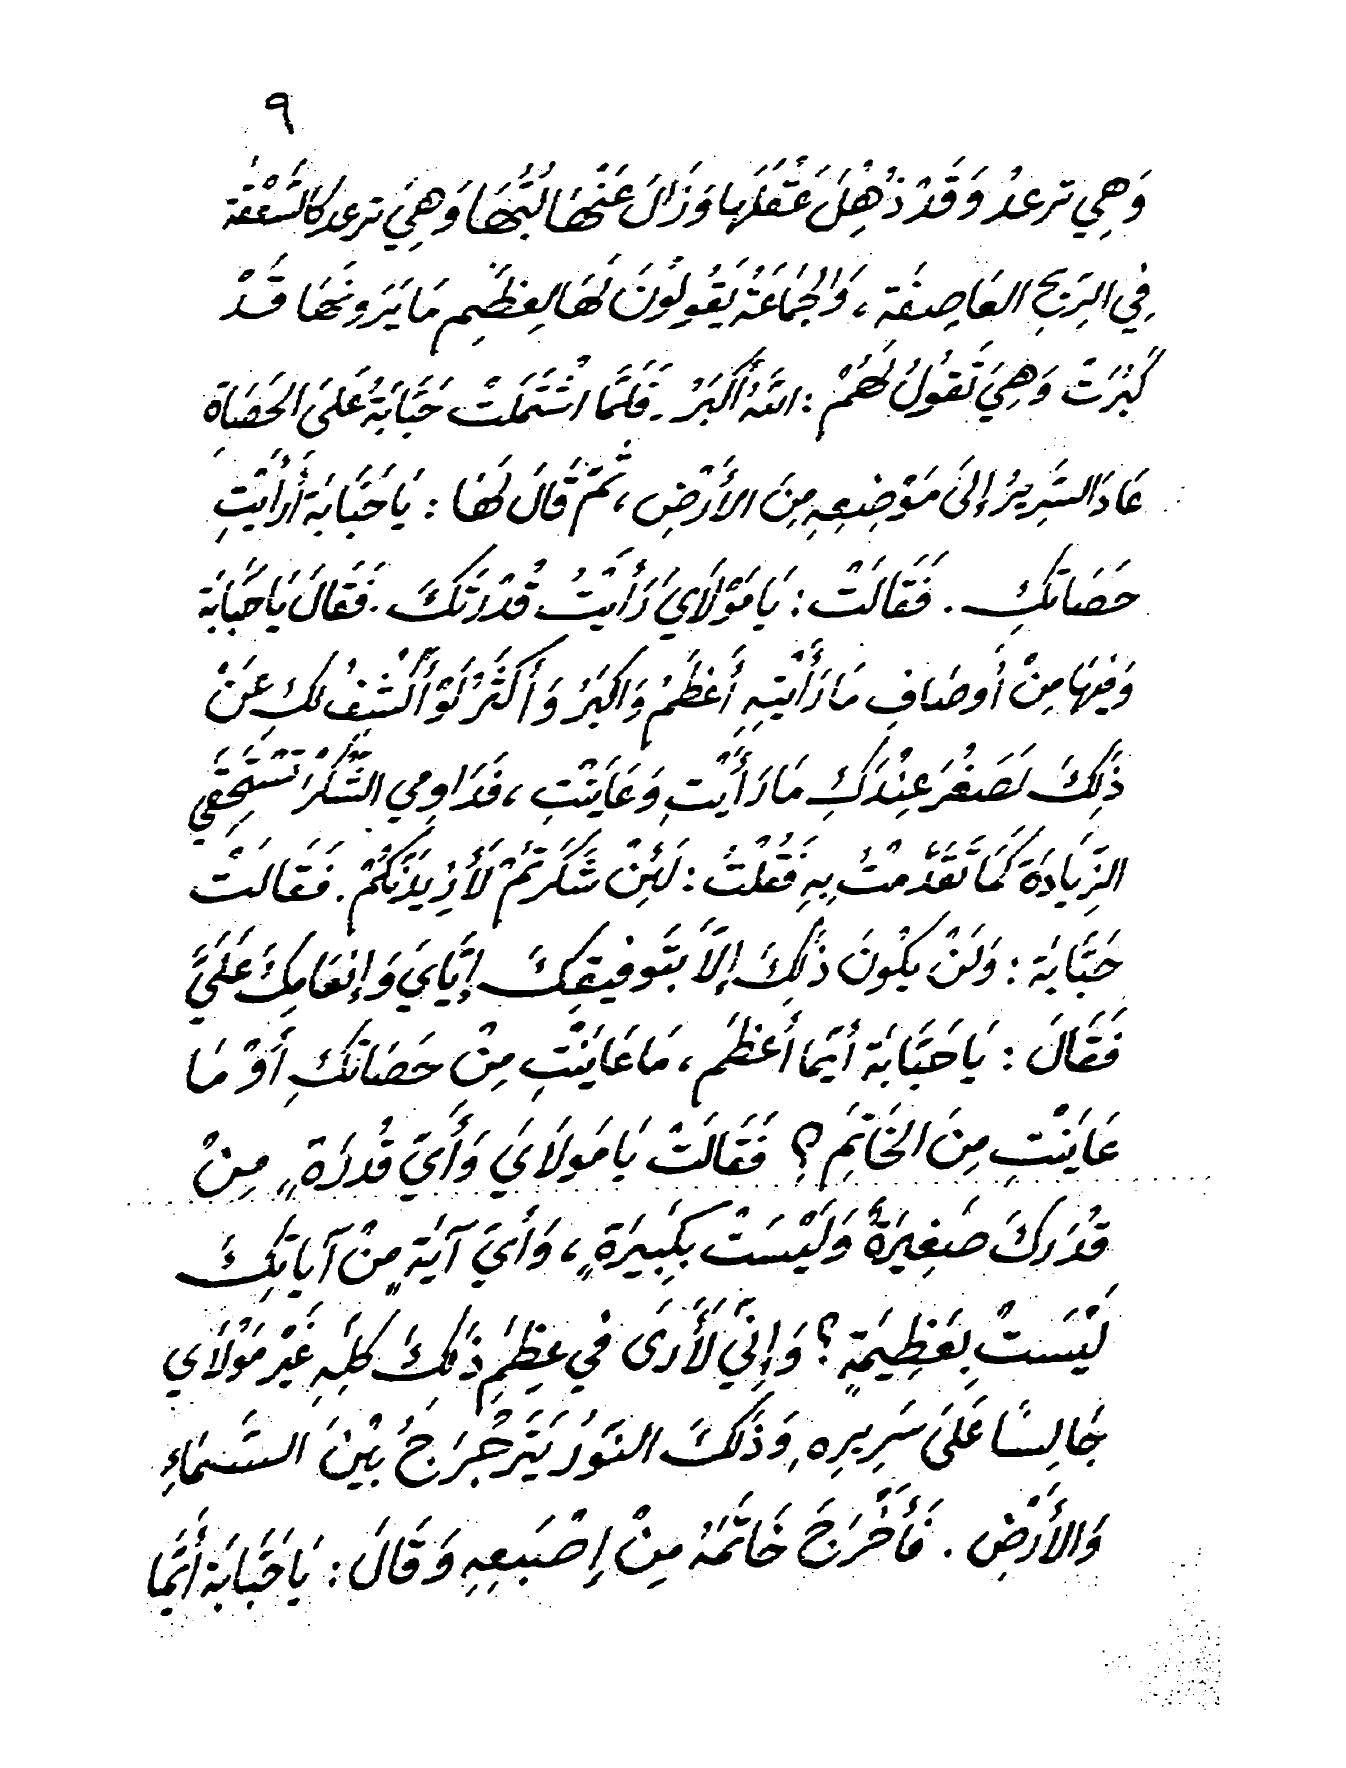 ٩
وَهِيَ ترعدُ وَقَدْ ذُهِلَ عَقْلُهَا وَزَالَ عَنْهَا لُبُّهَا وَهِيَ ترعد كالسَّعْفَة
فِي الرِيحِ العَاصِفَة ، وَالجَمَاعَةُ يَقُولُونَ لَهَا لِعِظَمِ مَا يَرَونَهَا قَدْ
كَبُرَتْ وَهِيَ تَقُولُ لَهُمْ : اللهُ أَكْبَرُ . فَلَمَّا اشْتَمَلَتْ حَبَّابَةُ عَلَى الحَصَاةِ
عَادَ السَّرِيرُ إلىَ مَوْضِعِهِ مِنَ الأَرْضِ ، ثُمَّ قَالَ لَهَا : يَا حَبَّابَة أَرَأَيْتِ
حَصَاتكِ . فَقَالَتْ : يَا مَوْلَايَ رَأَيْتُ قُدْرَتَكَ . فَقَالَ يَا حَبَّابَة
وَفِيهَا مِنْ أَوصَافِ مَا رَأَيْتِيهِ أَعْظَمُ وَاكبَرُ وَأَكْثَرُ لَوْ أَكْشِفُ لكِ عَنْ
ذَلِكَ لَصَغُرَ عِنْدَكِ مَا رَأَيْتِ وَعَايَنْتِ ، فَدَاوِمِي الشُّكْرَ تَسْتَحِقِّي
الزِّيَادَةَ كَمَا تَقَدَّمْتُ بِهِ فَقُلْتُ : لَئِنْ شَكَرْتُمْ لَأَزِيدَنَّكُمْ . فَقَالَتْ
حَبَّابَة : وَلَنْ يكُونَ ذَلِكَ إلَّا بِتَوفيقِكَ إيَّايَ وَإنعَامِكَ عَلَيَّ
فَقَالَ : يَا حَبَّابَة أيّمَا أَعْظَم ، مَا عَايَنْتِ مِنْ حَصَاتكِ أَوْ مَا
عَايَنْتِ مِنَ الخَاتِمِ ؟ فَقَالَتْ يَا مَولَايَ وَأَيّ قُدرَةٍ مِنْ
قُدرَتكَ صَغِيرَةٌ وَلَيْسَتْ بِكَبِيرَةٍ ، وَأيّ آيَةٍ مِنْ آيَاتِكَ
لَيْسَتْ بِعَظِيمَةٍ ؟ وَإِنِّي لَأَرَى فِي عِظَمِ ذَلكَ كلِّهِ غَيْر مَوْلَاي
جَالِسًا عَلَى سَرِيرِهِ وَذَلكَ النُّورُ يَتَرَجْرَجُ بَيْنَ السَّمَاءِ
وَالأَرْضِ . فَأَخْرَجَ خَاتَمَهُ مِنْ إِصْبَعِهِ وَقَالَ : يَا حَبَّابَة أَيّمَا